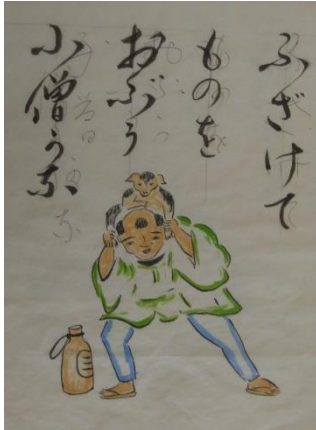 ふざけて
ものを
おぶう
小僧かな